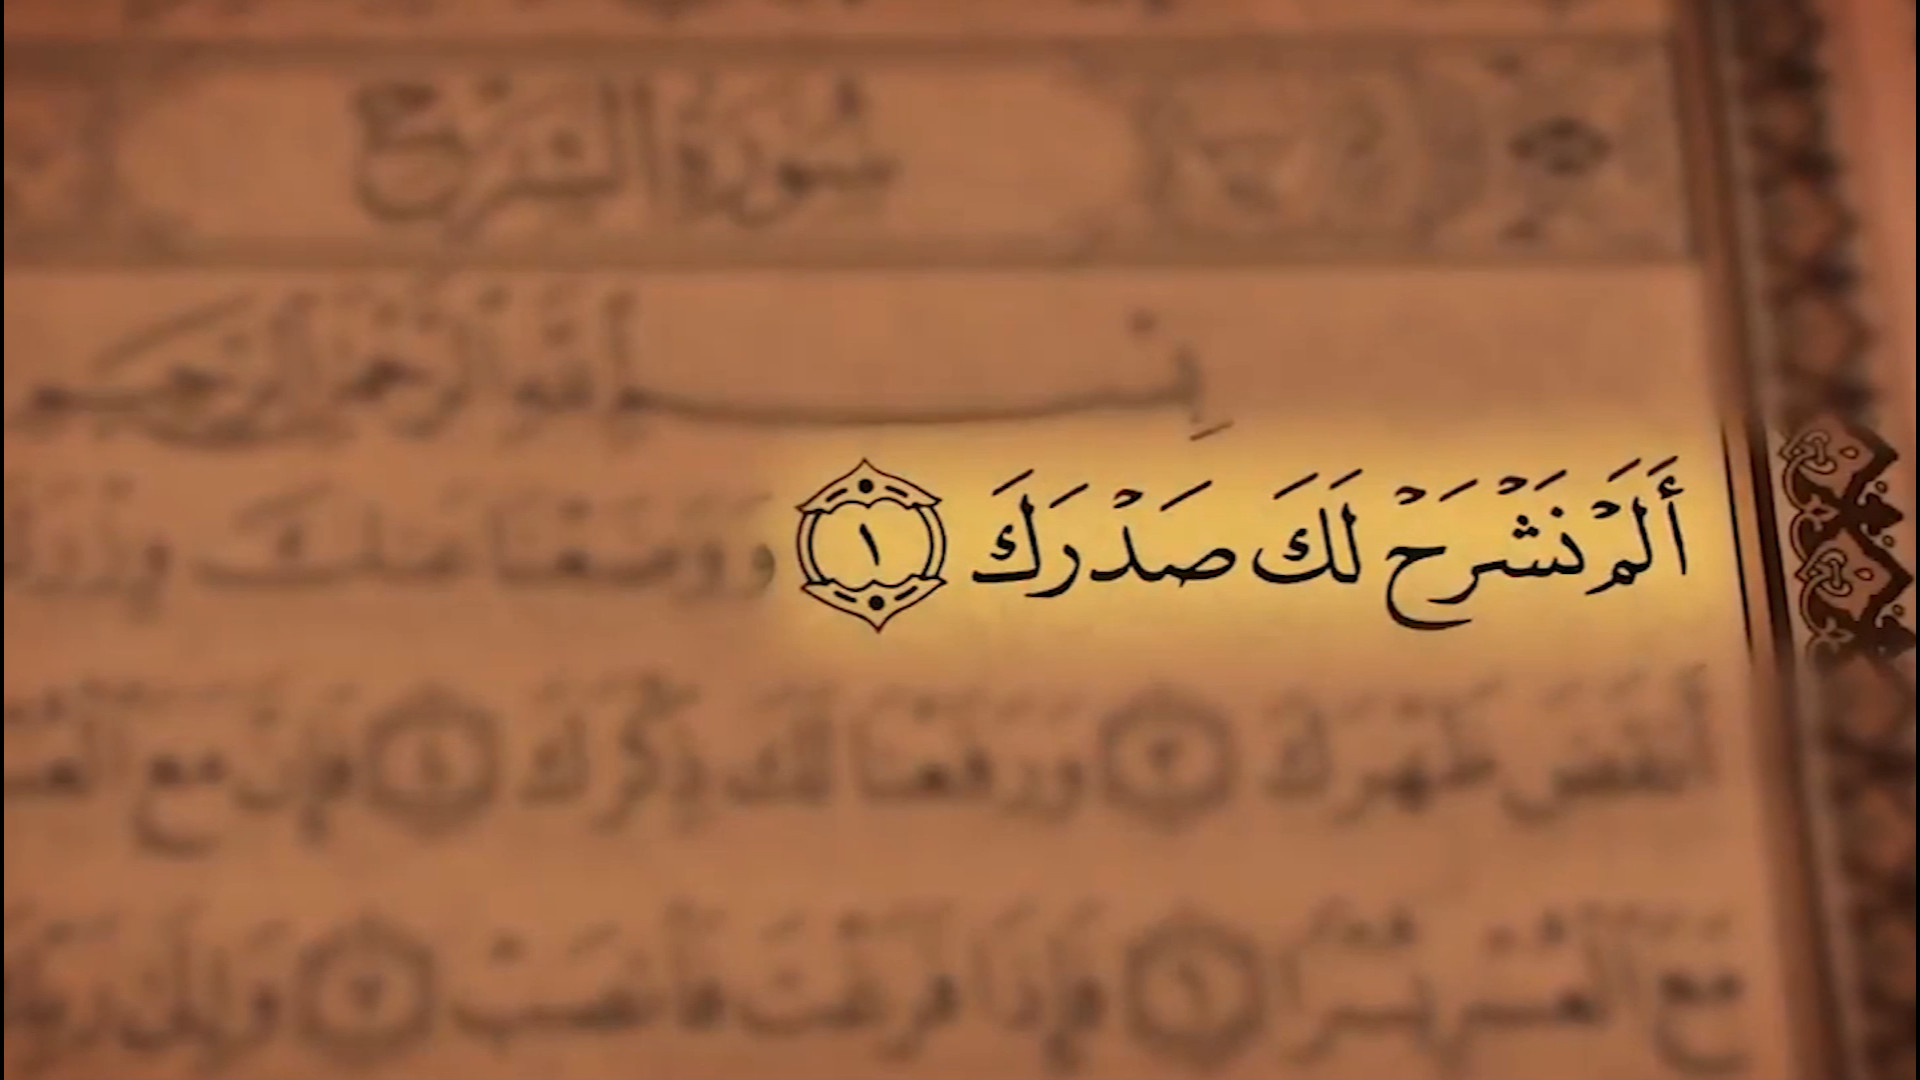 سُورَةُ الشَّرْحِ
بِسْمِ اللَّهِ الرَّحْمَٰنِ الرَّحِيمِ
أَلَمْ نَشْرَحْ لَكَ صَدْرَكَ ١ وَوَضَعْنَا عَنكَ وِزْرَكَ
أَنقَضَ ظَهْرَكَ ٣ وَرَفَعْنَا لَكَ ذِكْرَكَ ٤ فَإِنَّ مَعَ
مَعَ الْعُسْرِ يُسْرًا ٦ فَإِذَا فَرَغْتَ فَانصَبْ ٧ وَإِلَىٰ